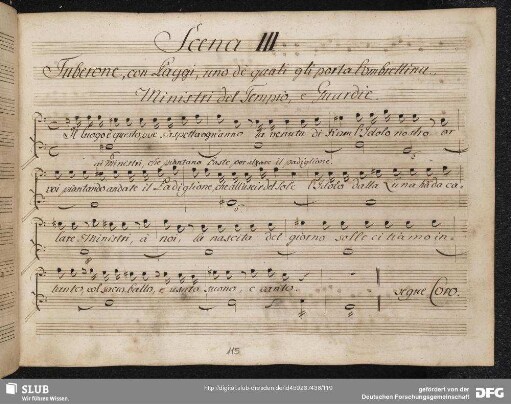 Scena III
Tuberone, con Paggi, uno de quali gli porta l'ombrellino
Ministri del Tempio, e Guardie
Il luogo è questo, ove s'aspetta ogn'anno la venuta di Kam l'Idolo nostro or
ai Ministri, che piantano l'aste per alzare il padiglione.
voi piantando andate il Padiglione, che all'uscir del sole l'Idolo dalla Luna hà da ca-
lare Ministri, à noi, la nascita del giorno sollecitiamo in-
tanto, col sacro ballo, e usato suono, e canto. segue Coro.
115
SLUB
Wir führen Wissen.
http://digital.slub-dresden.de/
gefördert von der
Deutschen Forschungsgemeinschaft
DFG